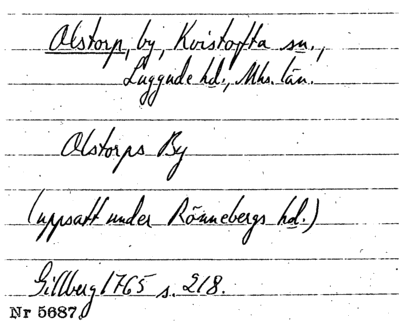 Olstorp, by, Kvistofta sn.,
Luggude hd., Mhs. län.
Olstorps By
(uppsatt under Rönnebergs hd.)
Gillberg 1765 s. 218.
Nr 5687